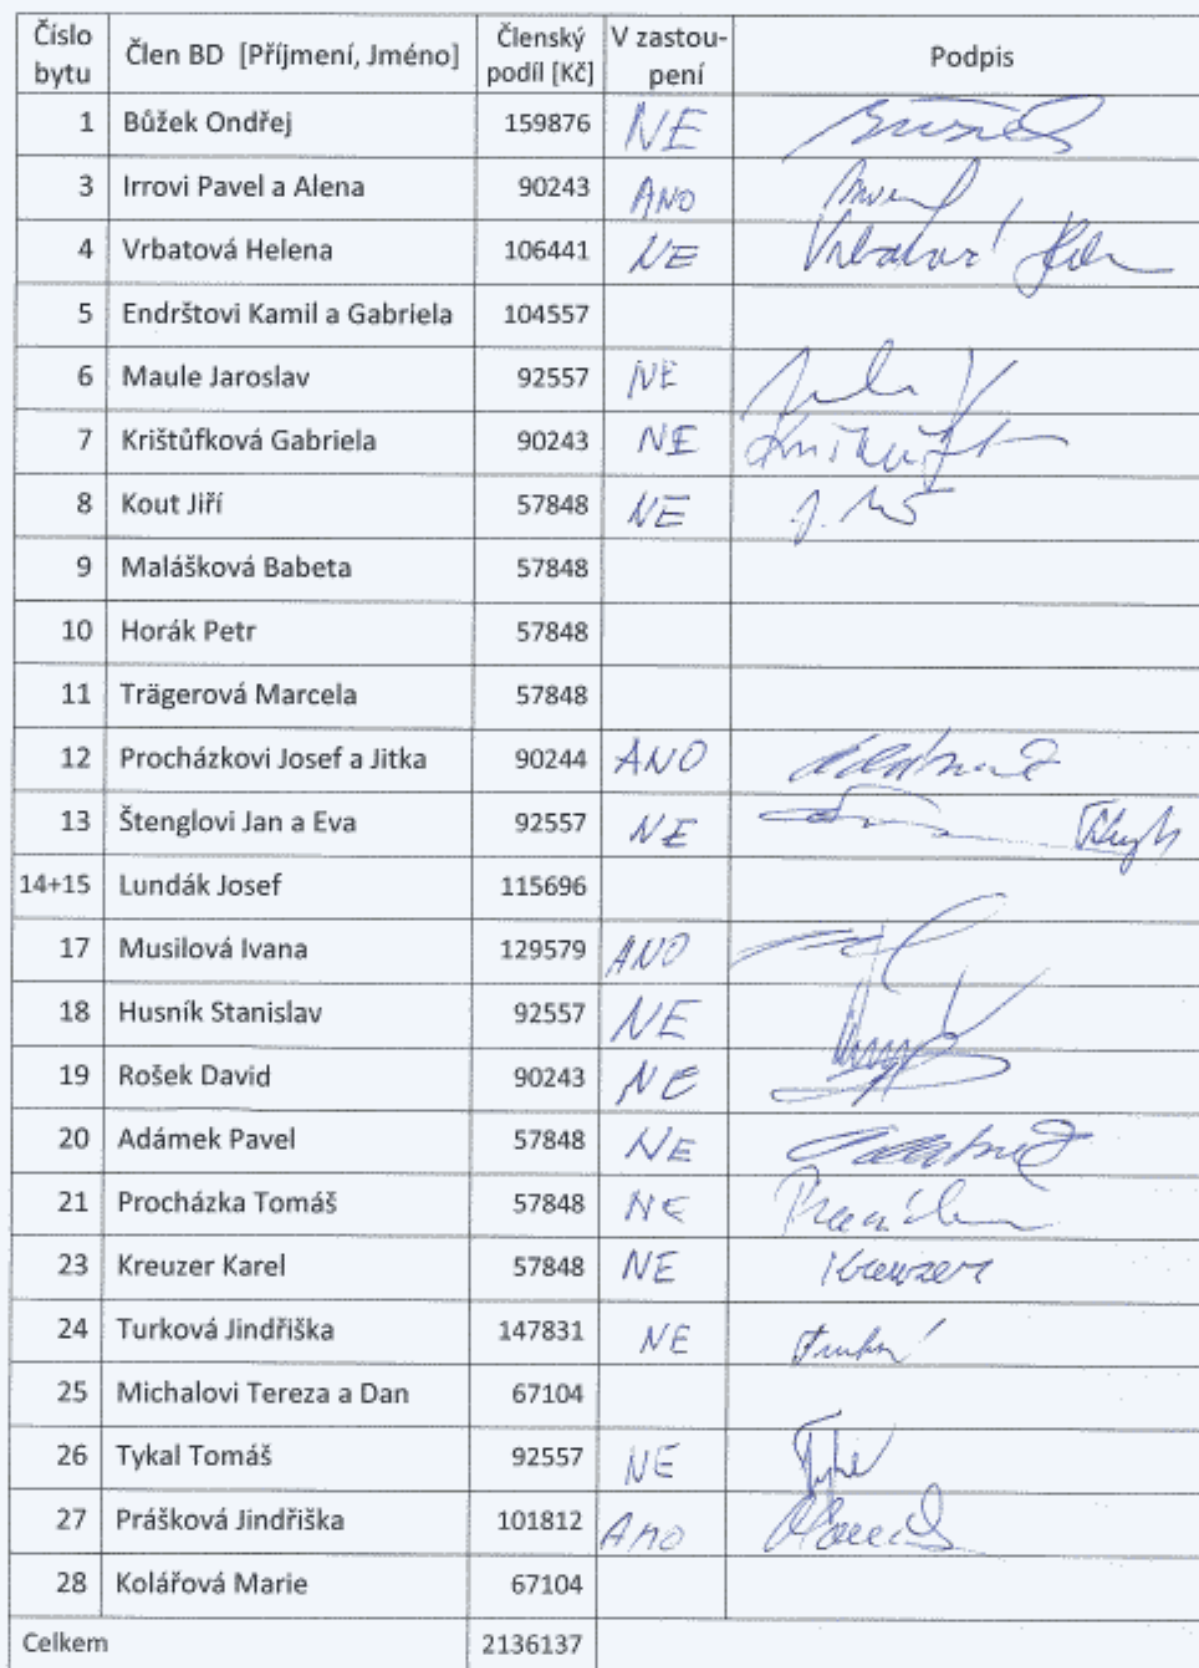 Číslo bytu Člen BD [Příjmení, Jméno] Členský podíl [Kč] V zastou- pení Podpis
1 Bůžek Ondřej 159876 NE
3 Irrovi Pavel a Alena 90243 ANO
4 Vrbatová Helena 106441 NE Vrbatová
5 Endrštovi Kamil a Gabriela 104557
6 Maule Jaroslav 92557 NE
7 Krištůfková Gabriela 90243 NE
8 Kout Jiří 57848 NE
9 Malášková Babeta 57848
10 Horák Petr 57848
11 Trägerová Marcela 57848
12 Procházkovi Josef a Jitka 90244 ANO
13 Štenglovi Jan a Eva 92557 NE
14+15 Lundák Josef 115696
17 Musilová Ivana 129579 ANO
18 Husník Stanislav 92557 NE
19 Rošek David 90243 NE
20 Adámek Pavel 57848 NE
21 Procházka Tomáš 57848 NE
23 Kreuzer Karel 57848 NE Kreuzer
24 Turková Jindřiška 147831 NE
25 Michalovi Tereza a Dan 67104
26 Tykal Tomáš 92557 NE
27 Prášková Jindřiška 101812 ANO
28 Kolářová Marie 67104
Celkem 2136137